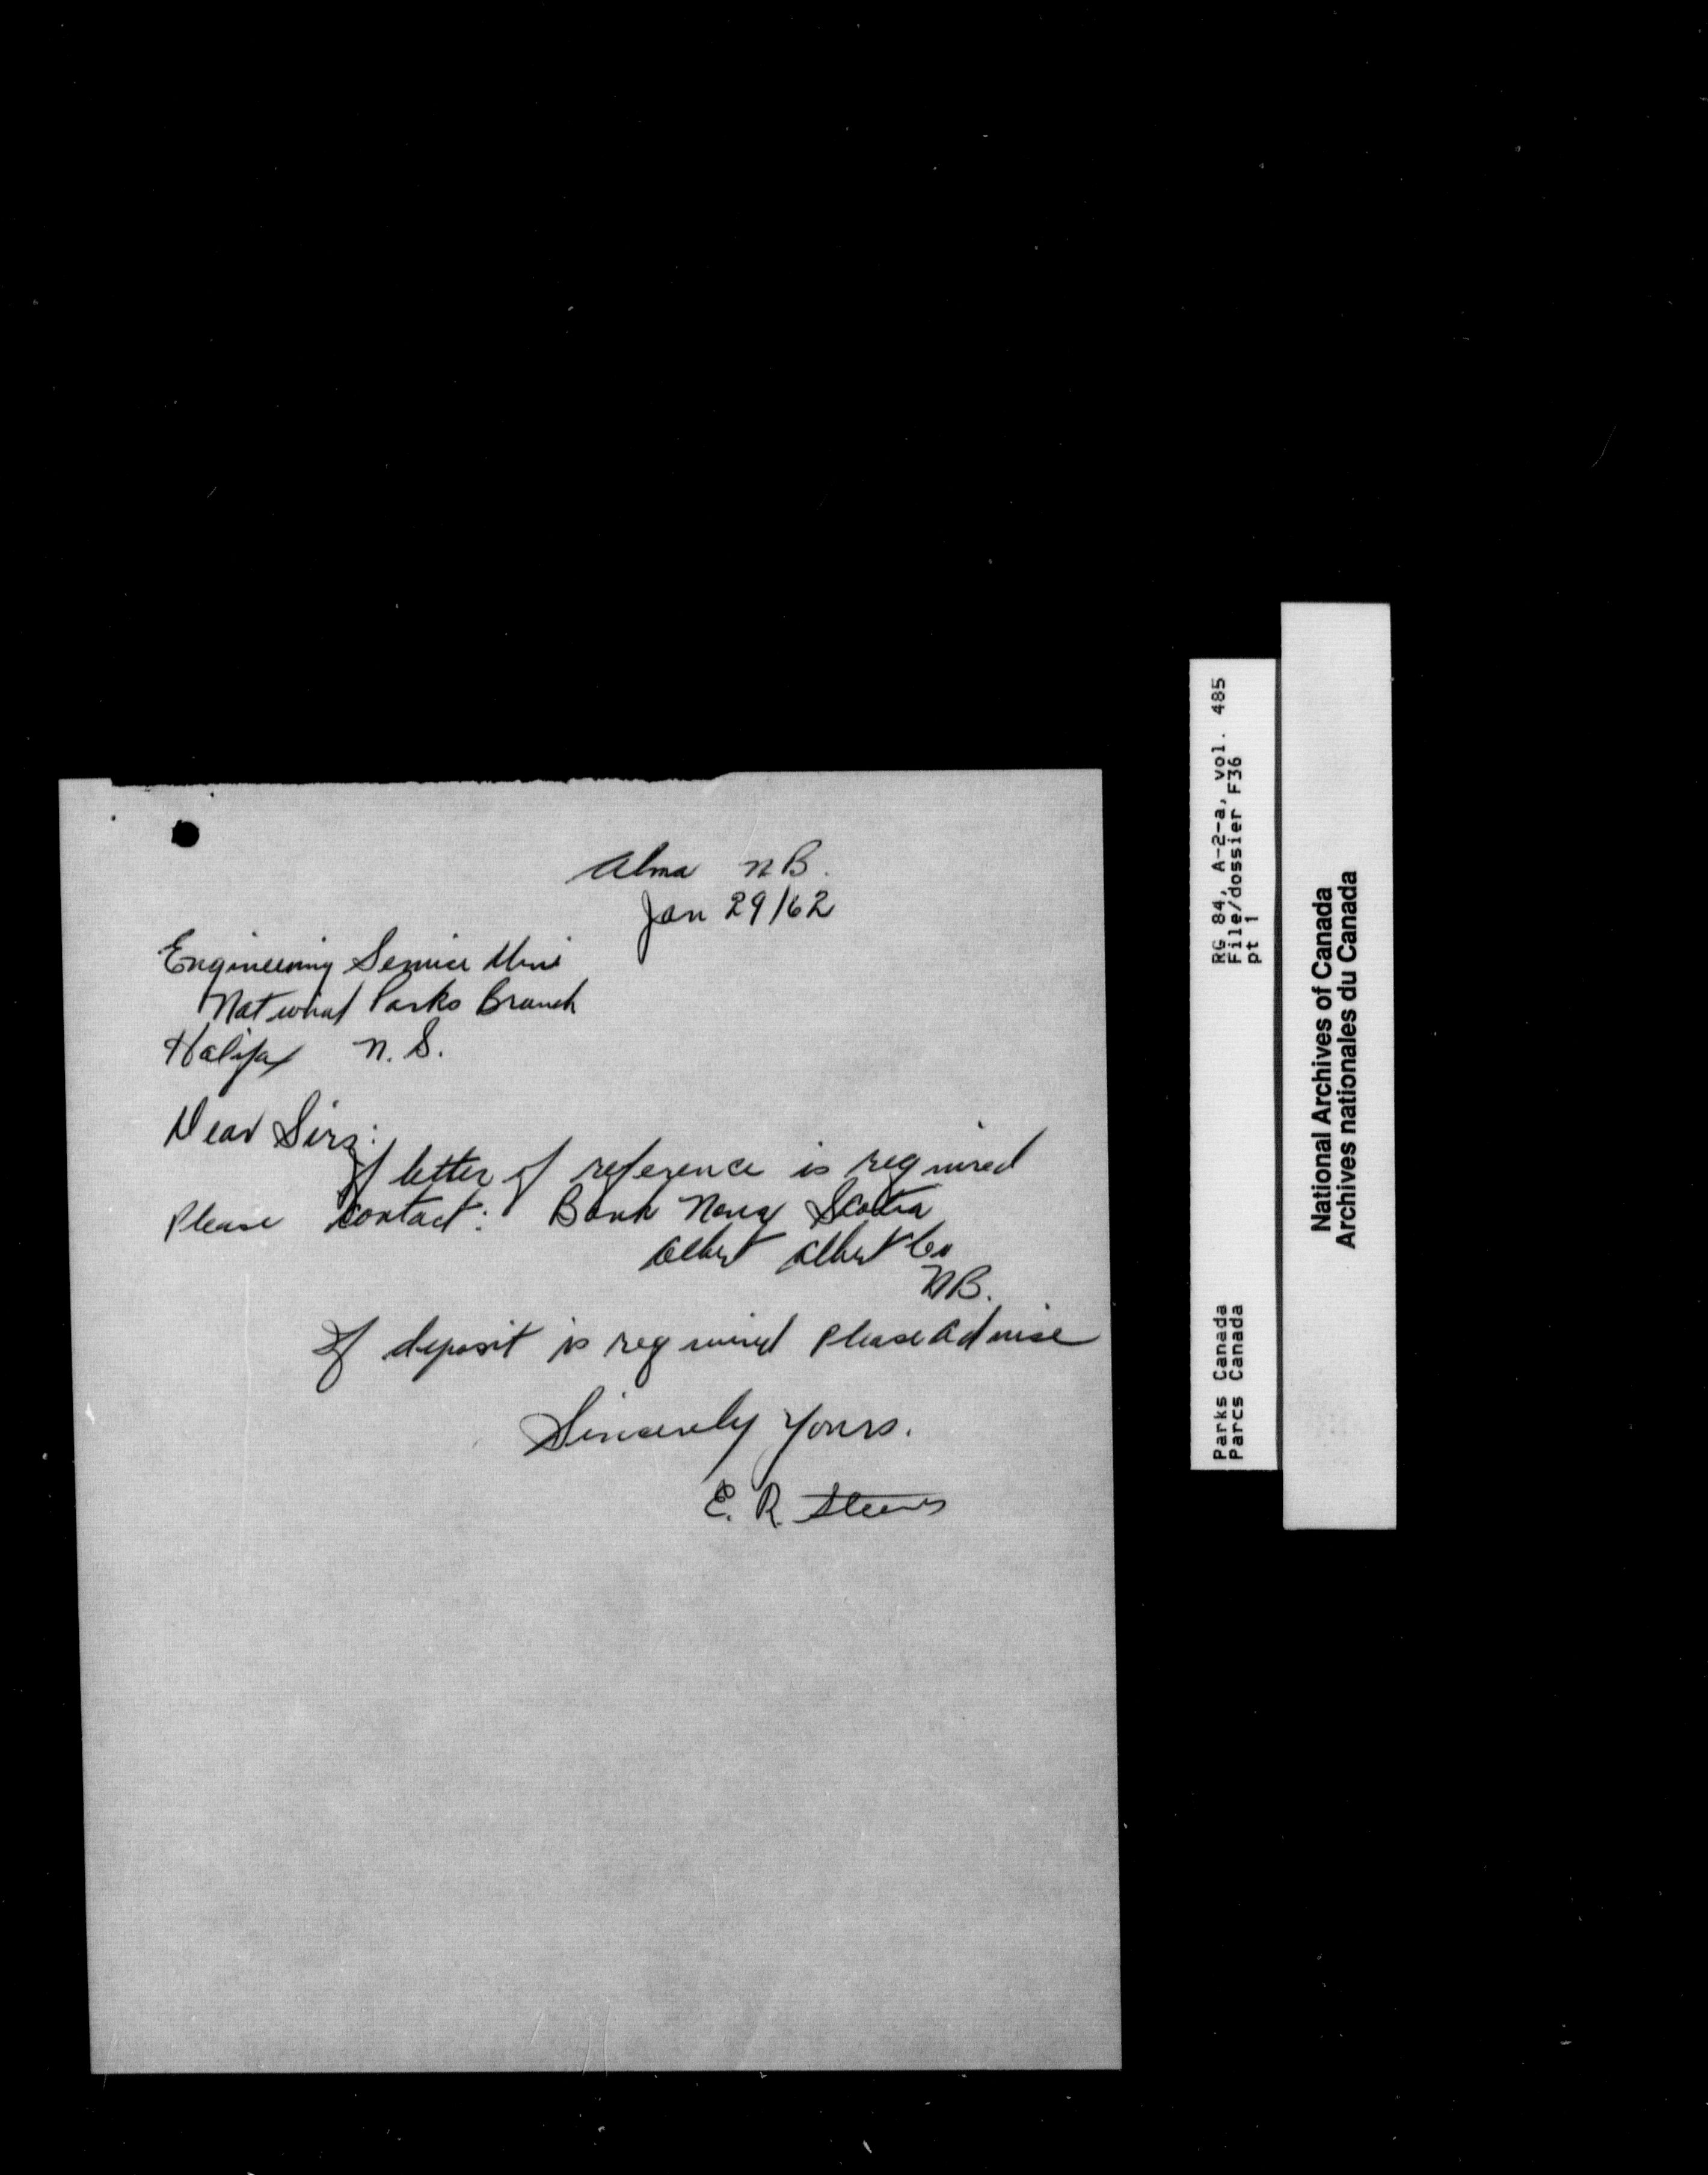 Alma N B.
Jan 29/62
Engineering Service
National Parks Branch
Halifax N. S.
Dear Sirs:
If letter of reference is required
Please contact: Bank Nova Scotia
Albert Albert Co
NB.
If deposit is required Please Advise
Sincerely Yours.
E. R. Steeves
RG 84, A-2-a, vol. 485
File/dossier F36
pt 1
Parks Canada
Parcs Canada
National Archives of Canada
Archives nationales du Canada